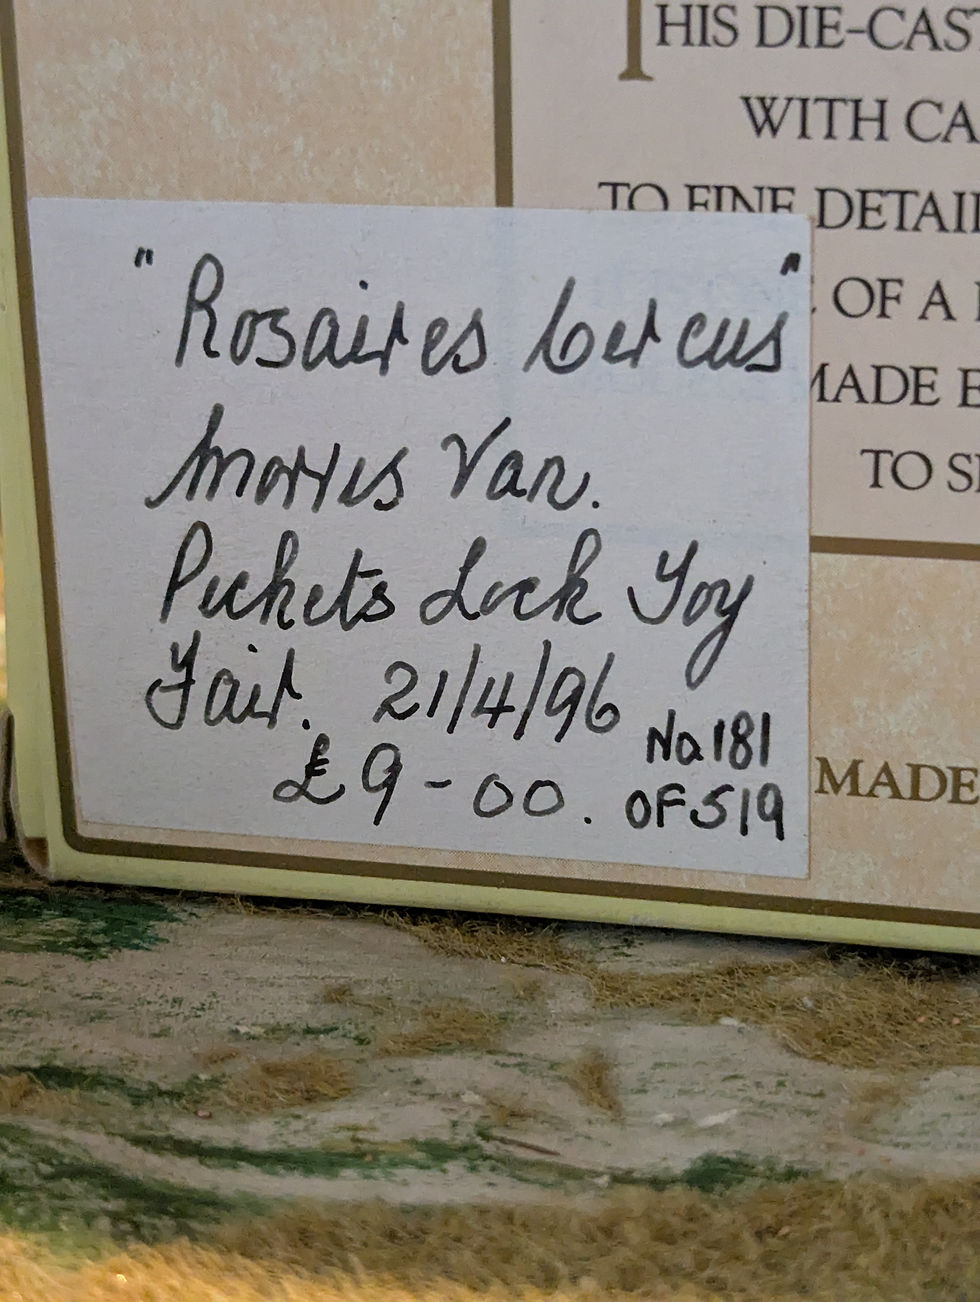 THIS DIE-CAS
WITH CA
TO FINE DETAI
OF A
MADE E
TO S
MADE
"Rosaires Circus"
Morris Van.
Pickets Lock Toy
Fair. 21/4/96
£9-00.
No 181
OF 519